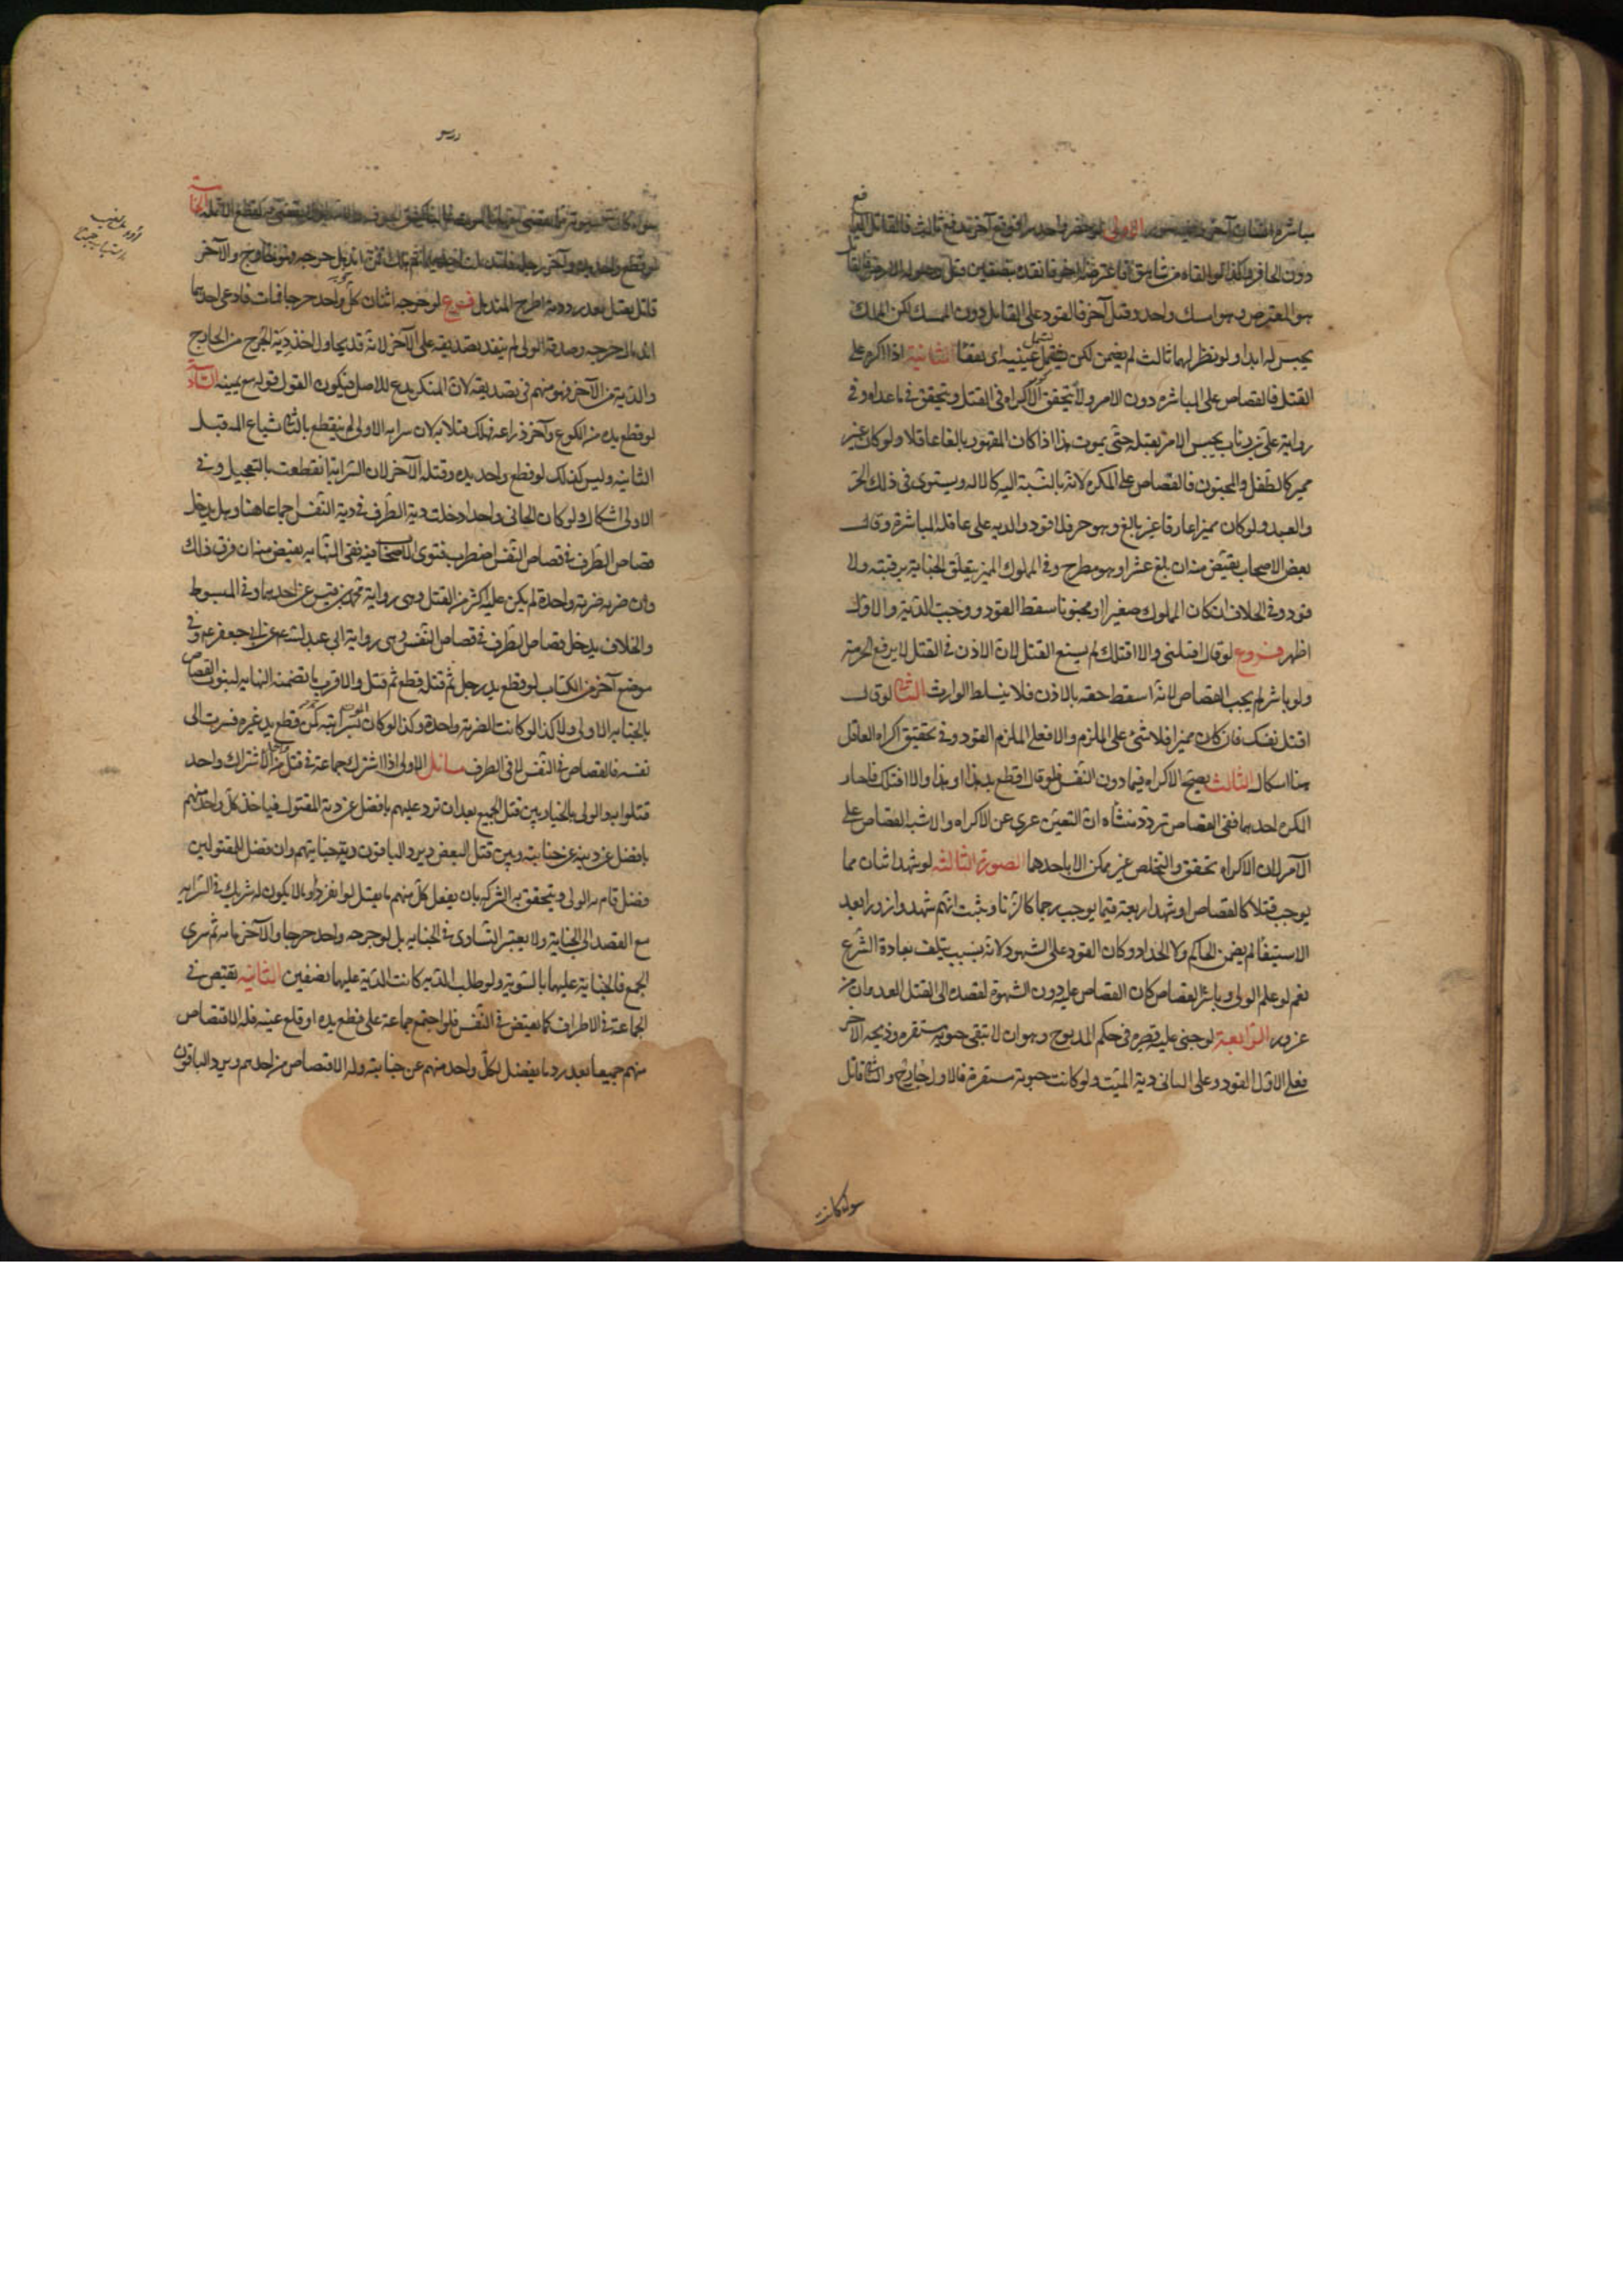 مباشرة انسان آخر وفيه صور الاولى لو حفر واحد بئرا فوقع آخر بدفع ثالث فالقاتل الدافع
دون الحافر وكذا لو القاه من شاهق فاعترضه آخر فقده بنصفين قبل وصوله الارض فالقاتل
هو المعترض ولو امسك واحد وقتل آخر فالقود على القاتل دون الممسك لكن الممسك
يحبس له ابدا ولو نظر لهما ثالث لم يضمن لكن تسمل عينيه اى تفقأ الثانية اذا اكره على
القتل فالقصاص على المباشر دون الآمر ولا يتحقق الاكراه فى القتل ويتحقق فى ما عداه وفى
رواية على بن رئاب يحبس الآمر بقتله حتى يموت هذا اذا كان المقهور بالغا عاقلا ولو كان غير
مميز كالطفل والمجنون فالقصاص على المكره لانه بالنسبة اليه كالاله ويستوى فى ذلك الحر
والعبد ولو كان مميزا عارفا غير بالغ وهو حر فلا قود والديه على عاقلة المباشر وقال
بعض الاصحاب يقتص منه ان بلغ عشرا وهو مطرح وفى المملوك المميز يتعلق الجناية برقبته ولا
قود وفى الخلاف ان كان المملوك صغيرا او مجنونا سقط القود ووجبت الدية والاول
اظهر فروع لو قال اقتلنى والا اقتلك لم يسغ القتل لان الاذن فى القتل لا يرفع الحرمة
ولو باشر لم يجب القصاص لانه اسقط حقه بالاذن فلا يتسلط الوارث الثانى لو قال
اقتل نفسك فان كان مميزا فلا شئ على الملزم والا فعلى الملزم القود وفى تحقيق اكراه العاقل
هنا اشكال الثالث يصح الاكراه فيما دون النفس فلو قال اقطع يد هذا او هذا والا قتلتك فاختار
المكره احدهما ففى القصاص تردد منشأه ان التعيين عرى عن الاكراه والاشبه القصاص على
الآمر لان الاكراه تحقق والتخلص غير ممكن الا باحدهما الصورة الثالثه لو شهد اثنان بما
يوجب قتلا كالقصاص او شهد اربعة فيما يوجب رجما كالزنا وثبت انهم شهدوا زورا بعد
الاستيفا لم يضمن الحاكم ولا الحداد وكان القود على الشهود لانه بسبب متلف بعادة الشرع
نعم لو علم الولى وباشر القصاص كان القصاص عليه دون الشهود لقصده الى القتل للعدوان من
غرور الرابعة لو جنى عليه فصيره فى حكم المذبوح وهو ان لا تبقى حيوته مستقره وذبحه الآخر
فعلى الاول القود وعلى الثانى دية الميت ولو كانت حيوته مستقرة فالاول جارح والثانى قاتل
سواء كانت
درس
سواء كانت جنايته مما يقضى معها بالموت غالبا
لو قطع واحد يده وآخر رجله فاندملت احداهما ثم هلك فمن اندمل جرحه فهو جارح والآخر
قاتل يقتل بعد رد دية الجرح المندمل فرع لو جرحه اثنان كل واحد جرحا فمات فادعى احدهما
اندمال جرحه وصدقه الولى لم ينفذ تصديقه على الآخر لانه قد يحاول اخذ دية الجرح من الجارح
والدية من الآخر فهو متهم فى تصديقه لان المنكر يدع للاصل فيكون القول قوله مع يمينه السادسة
لو قطع يده من الكوع وآخر ذراعه فهلك قتلا به لان سراية الاولى لم ينقطع بالثانى شياع المه قبل
الثانيه وليس كذلك لو قطع واحد يده وقتله الآخر لان السراية انقطعت بالتعجيل وفى
الاولى اشكال ولو كان الجانى واحدا دخلت دية الطرف فى دية النفس اجماعا هنا وهل يدخل
قصاص الطرف فى قصاص النفس اضطرب فتوى الاصحاب فيه ففى النهايه يقتص منه ان فرق ذلك
وان ضربه ضربة واحدة لم يكن عليه اكثر من القتل وهى رواية محمد بن قيس عن احدهما وفى المبسوط
والخلاف يدخل قصاص الطرف فى قصاص النفس وهى رواية ابى عبيده عن ابى جعفر ع وفى
موضع آخر من الكتاب لو قطع يد رجل ثم قتله قطع ثم قتل والاقرب ما تضمنه النهايه لثبوت القصاص
بالجنايه الاولى ولا كذا لو كانت الضربة واحدة وكذا لو كان بسرايته كمن قطع يد غيره فسرت الى
نفسه فالقصاص فى النفس لا فى الطرف مسائل الاولى اذا اشترك جماعة فى قتل من الاشتراك واحد
قتلوا به والولى بالخيار بين قتل الجميع بعد ان ترد عليهم ما فضل عن دية المقتول فياخذ كل واحد منهم
ما فضل عن ديته عن جنايته وبين قتل البعض ويرد الباقون دية جنايتهم وان فضل للمقتولين
فضل قام به الولى ويتحقق به الشركه بان يفعل كل منهم ما يقتل لو انفرد او ما يكون له شريك فى السرايه
مع القصد الى الجناية ولا يعتبر التساوى فى الجنايه بل لو جرحه واحد جرحا والآخر مائه ثم سرى
الجمع فالجناية عليهما بالسوية ولو طلب الدية كانت الدية عليهما نصفين الثانيه يقتص فى
الجماعة فى الاطراف كما يقتص فى النفس فلو اجتمع جماعة على قطع يده او قلع عينه فله الاقتصاص
منهم جميعا بعد رد ما يفضل لكل واحد منهم عن جنايته وله الاقتصاص من احدهم ويرد الباقون